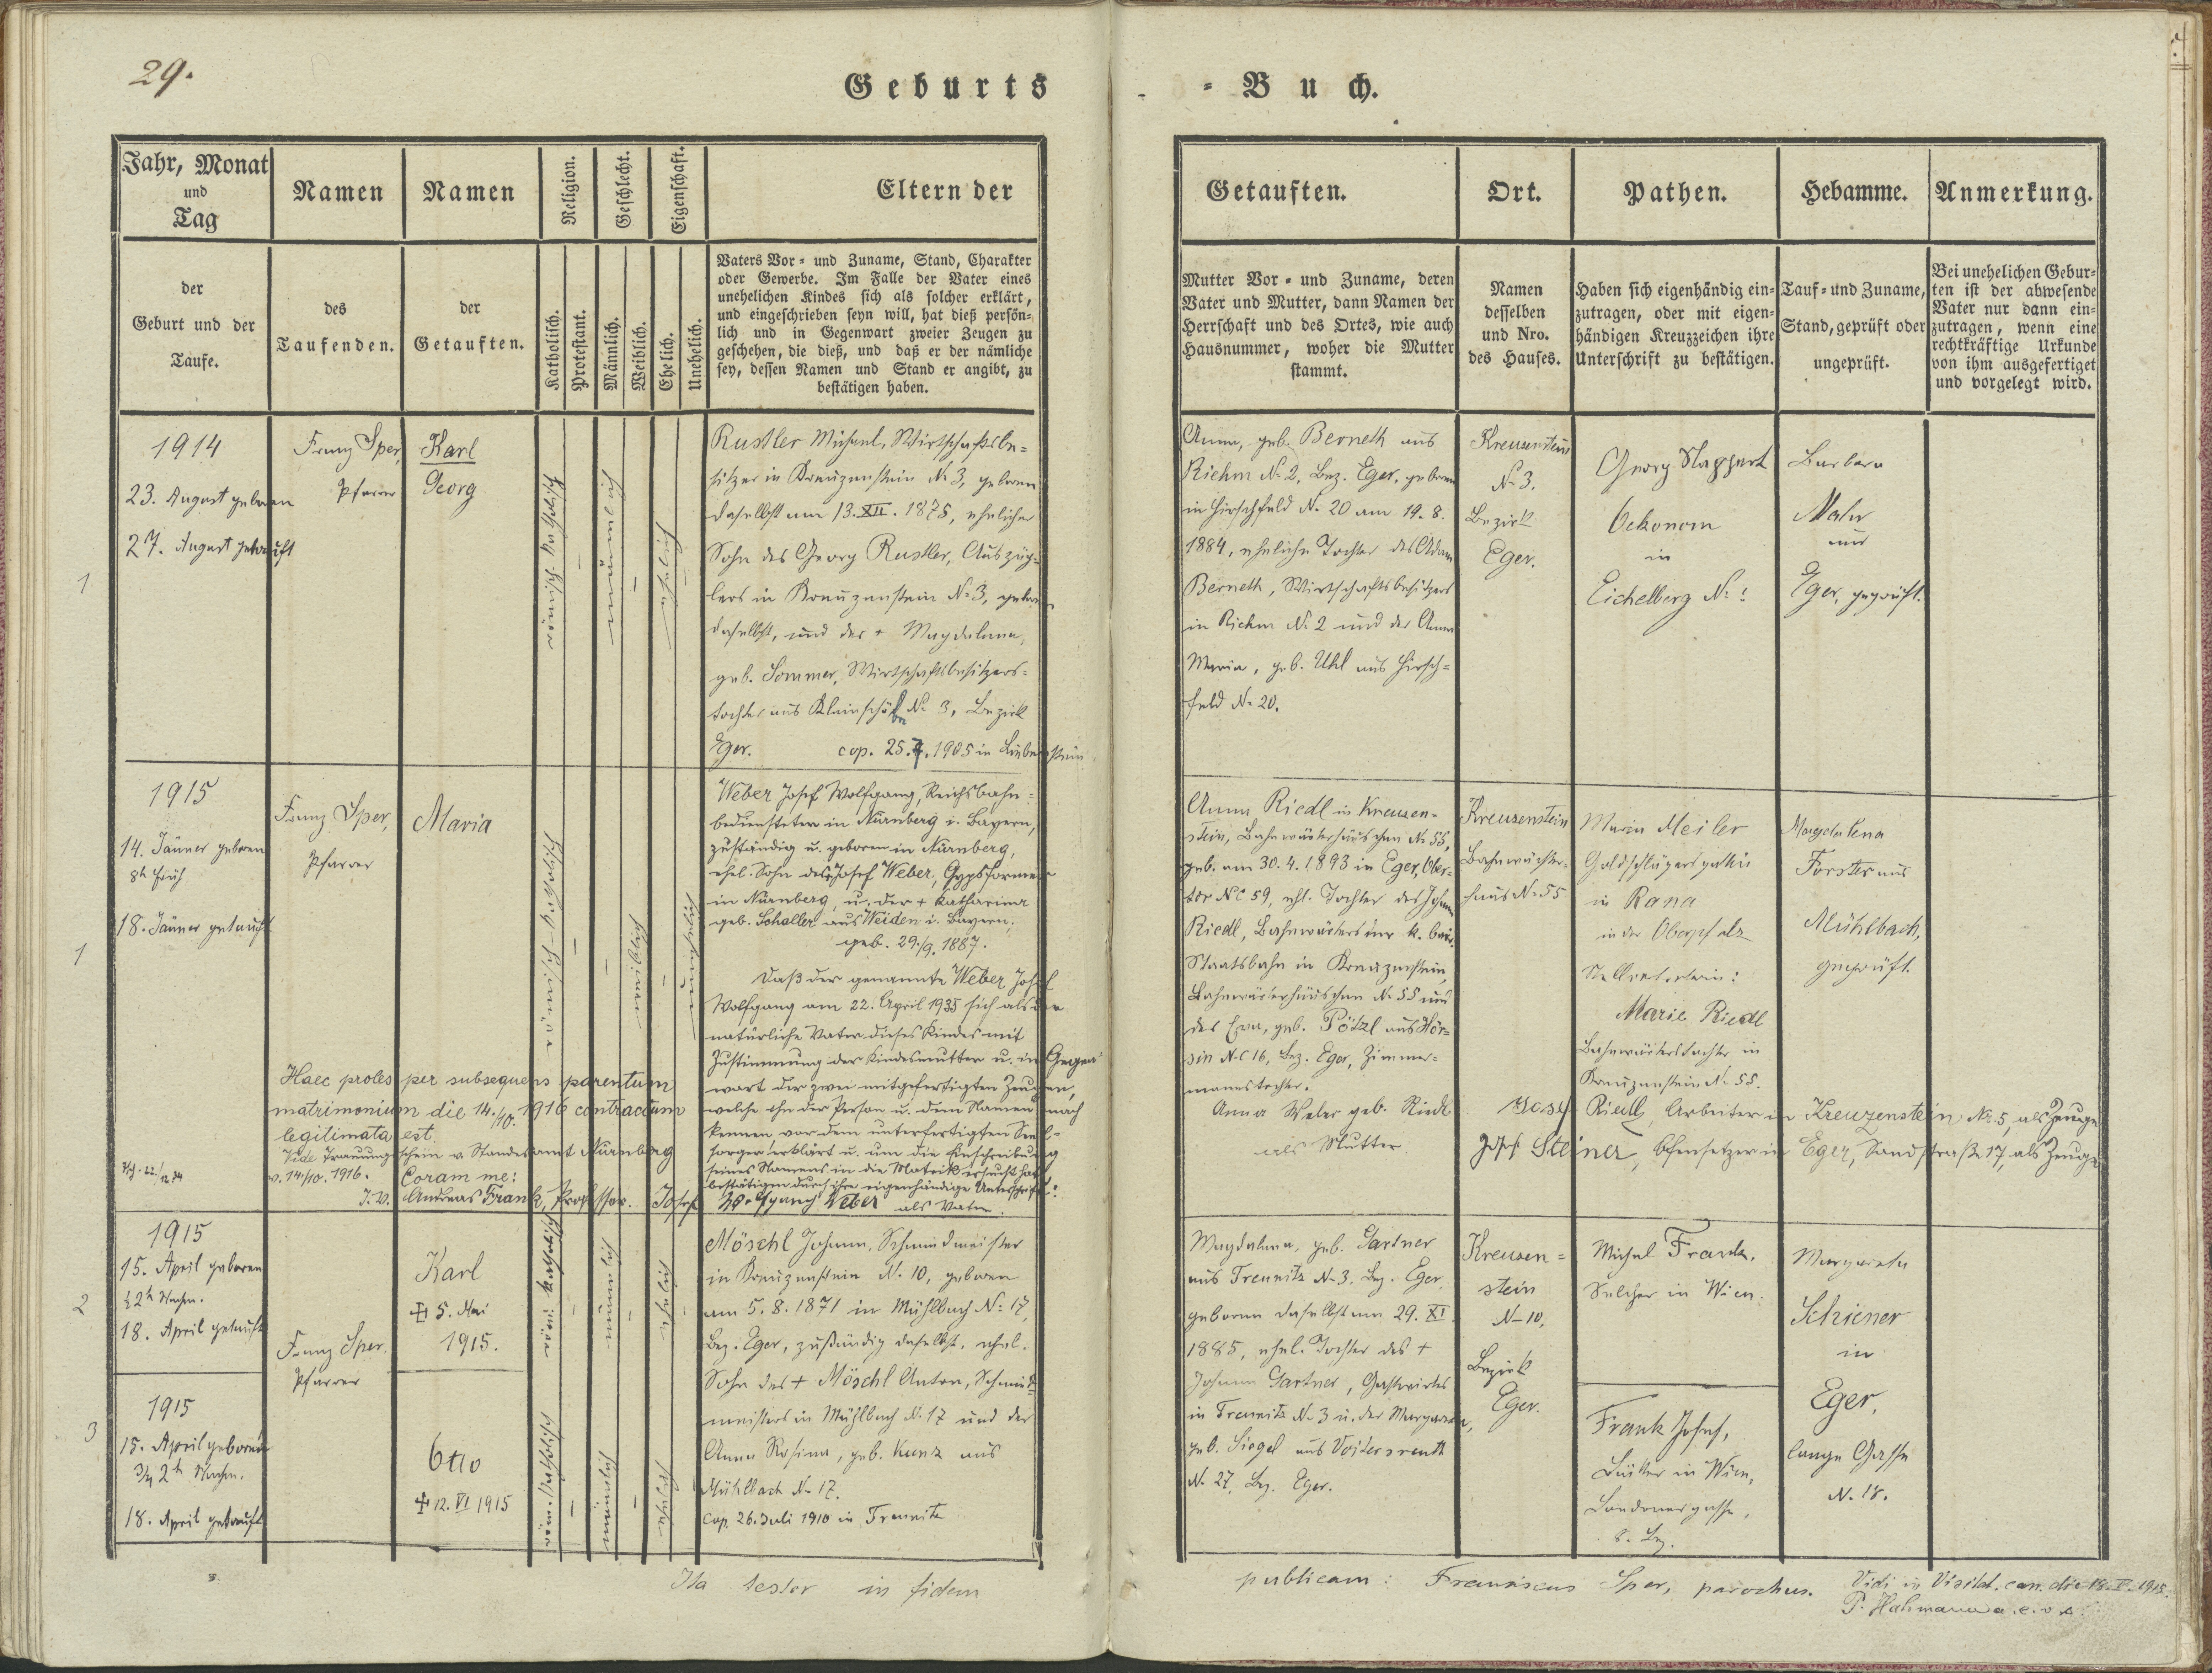 29.
Geburts
- Buch.
Jahr, Monat
und
Tag
Namen
Namen
Religion.
Geschlecht.
Eigenschaft.
Eltern der
der
Geburt und der
Taufe.
des
Taufenden.
der
Getauften.
Katholisch.
Protestant.
Männlich.
Weiblich.
Ehelich.
Unehelich.
Vaters Vor- und Zuname, Stand, Charakter
oder Gewerbe. Im Falle der Vater eines
unehelichen Kindes sich als solcher erklärt,
und eingeschrieben seyn will, hat dieß persön-
lich und in Gegenwart zweier Zeugen zu
geschehen, die dieß, und daß er der nämliche
sey, dessen Namen und Stand er angibt, zu
bestätigen haben.
Getauften.
Ort.
Pathen.
Hebamme.
Anmerkung.
Mutter Vor- und Zuname, deren
Vater und Mutter, dann Namen der
Herrschaft und des Ortes, wie auch
Hausnummer, woher die Mutter
stammt.
Namen
desselben
und Nro.
des Hauses.
Haben sich eigenhändig ein-
zutragen, oder mit eigen-
händigen Kreuzzeichen ihre
Unterschrift zu bestätigen.
Tauf- und Zuname,
Stand, geprüft oder
ungeprüft.
Bei unehelichen Gebur-
ten ist der abwesende
Vater nur dann ein-
zutragen, wenn eine
rechtkräftige Urkunde
von ihm ausgefertiget
und vorgelegt wird.
1
1914
23. August geboren
27. August getauft
Franz Sper,
Pfarrer
Karl
Georg
römisch-katholisch
männlich
ehelich
Rustler Michael, Wirtschaftsbe-
sitzer in Kreuzenstein № 3, geboren
daselbst am 13. XII. 1875, ehelicher
Sohn des Georg Rustler, Auszüg-
lers in Kreuzenstein № 3, geboren
daselbst, und der + Magdalena,
geb. Sommer, Wirtschaftsbesitzers-
tochter aus № 3, Bezirk
Eger. cop. 25. 7. 1905 in Liebenstein
Anna, geb. Berneth aus
Riehm № 2, Bez. Eger, geboren
in Hirschfeld № 20 am 19. 8.
1884, eheliche Tochter des Adam
Berneth, Wirtschaftsbesitzers
in Riehm № 2 und der Anna
Maria, geb. Uhl aus Hirsch-
feld № 20.
Kreuzenstein
№ 3.
Bezirk
Eger.
Georg
Oekonom
in
Eichelberg №
Barbara
Maler
aus
Eger, geprüft.
1
1915
14. Jänner geboren
8h früh
18. Jänner getauft
Franz Sper,
Pfarrer
Maria
römisch-katholisch
weiblich
unehelich
Weber Josef Wolfgang, Reichsbahn-
bediensteter in Nürnberg i. Bayern,
zuständig u. geboren in Nürnberg,
ehel. Sohn des Josef Weber, Gypsformer
in Nürnberg, u. der + Katharina
geb. Schaller aus Weiden i. Bayern,
geb. 29./9. 1887.
Daß der genannte Weber Josef
Wolfgang am 22. April 1935 sich als der
natürliche Vater dieses Kindes mit
Zustimmung der Kindesmutter u. in Gegen-
wart der zwei mitgefertigten Zeugen,
welche ihn der Person u. dem Namen nach
kennen, vor dem unterfertigten Seel-
sorger erklärt u. um die Einschreibung
seines Namens in die Matrik ersucht hat,
bestätigen durch ihre eigenhändige Unterschrift:
Haec proles per subsequens parentum
matrimonium die 14./10. 1916 contractum
legitimata est.
Vide Trauungsschein v. Standesamt Nürnberg
v. 14./10. 1916. Coram me:
I. V. Andreas Frank, Professor. Josef Wolfgang Weber als Vater.
Anna Riedl in Kreuzen-
stein, Bahnwärterhäuschen № 55,
geb. am 30. 4. 1893 in Eger, Ober-
tor NC 59, ehl. Tochter des Johann
Riedl, Bahnwärters der k. bair.
Staatsbahn in Kreuzenstein,
Bahnwärterhäuschen № 55 und
der Eva, geb. Pötzl aus
NC 16, Bez. Eger, Zimmer-
mannstochter.
Anna Weber geb. Riedl
als Mutter
Kreuzenstein
Bahnwächter-
haus № 55
Maria Meiler
Goldschlägersgattin
in Rana
in der Oberpfalz
Stellvertreterin:
Marie Riedl
Bahnwärterstochter in
Kreuzenstein № 55.
Josef Riedl, Arbeiter in Kreuzenstein No. 5, als Zeuge
Josef Steiner, Ofensetzer in Eger, Sandstraße 17, als Zeuge
Magdalena
Forster aus
Mühlbach,
geprüft.
2
1915
15. April geboren
½2h Nachm.
18. April getauft
Franz Sper.
Pfarrer
Karl
+ 5. Mai
1915.
röm: katholisch
männlich
ehelich
3
1915
15. April geboren
¾2h Nachm.
18. April getauft
Otto
+ 12. VI 1915
röm. katholisch
männlich
ehelich
Möschl Johann, Schmiedmeister
in Kreuzenstein № 10, geboren
am 5. 8. 1871 in Mühlbach № 17,
Bez. Eger, zuständig daselbst, ehel.
Sohn des + Möschl Anton, Schmied-
meisters in Mühlbach № 17 und der
Anna Rosina, geb. Kunz aus
Mühlbach № 17.
cop. 26. Juli 1910 in Treunitz
Magdalena, geb. Gartner
aus Treunitz № 3. Bez. Eger,
geboren daselbst am 29. XI
1885, ehel. Tochter des +
Johann Gartner, Gastwirtes
in Treunitz № 3 u. der Margareta,
geb. Siegel aus Voitersreuth
№ 27, Bez. Eger.
Kreuzen-
stein
№ 10.
Bezirk
Eger.
Michael Frank,
Selcher in Wien.
Frank Josef,
in Wien,
8. Bz.
Margareta
Schiener
in
Eger,
lange Gasse
№ 18.
Ita testor in fidem
publicam: Franciscus Sper, parochus.
Vidi in Visitat. can. die 18. V. 1915.